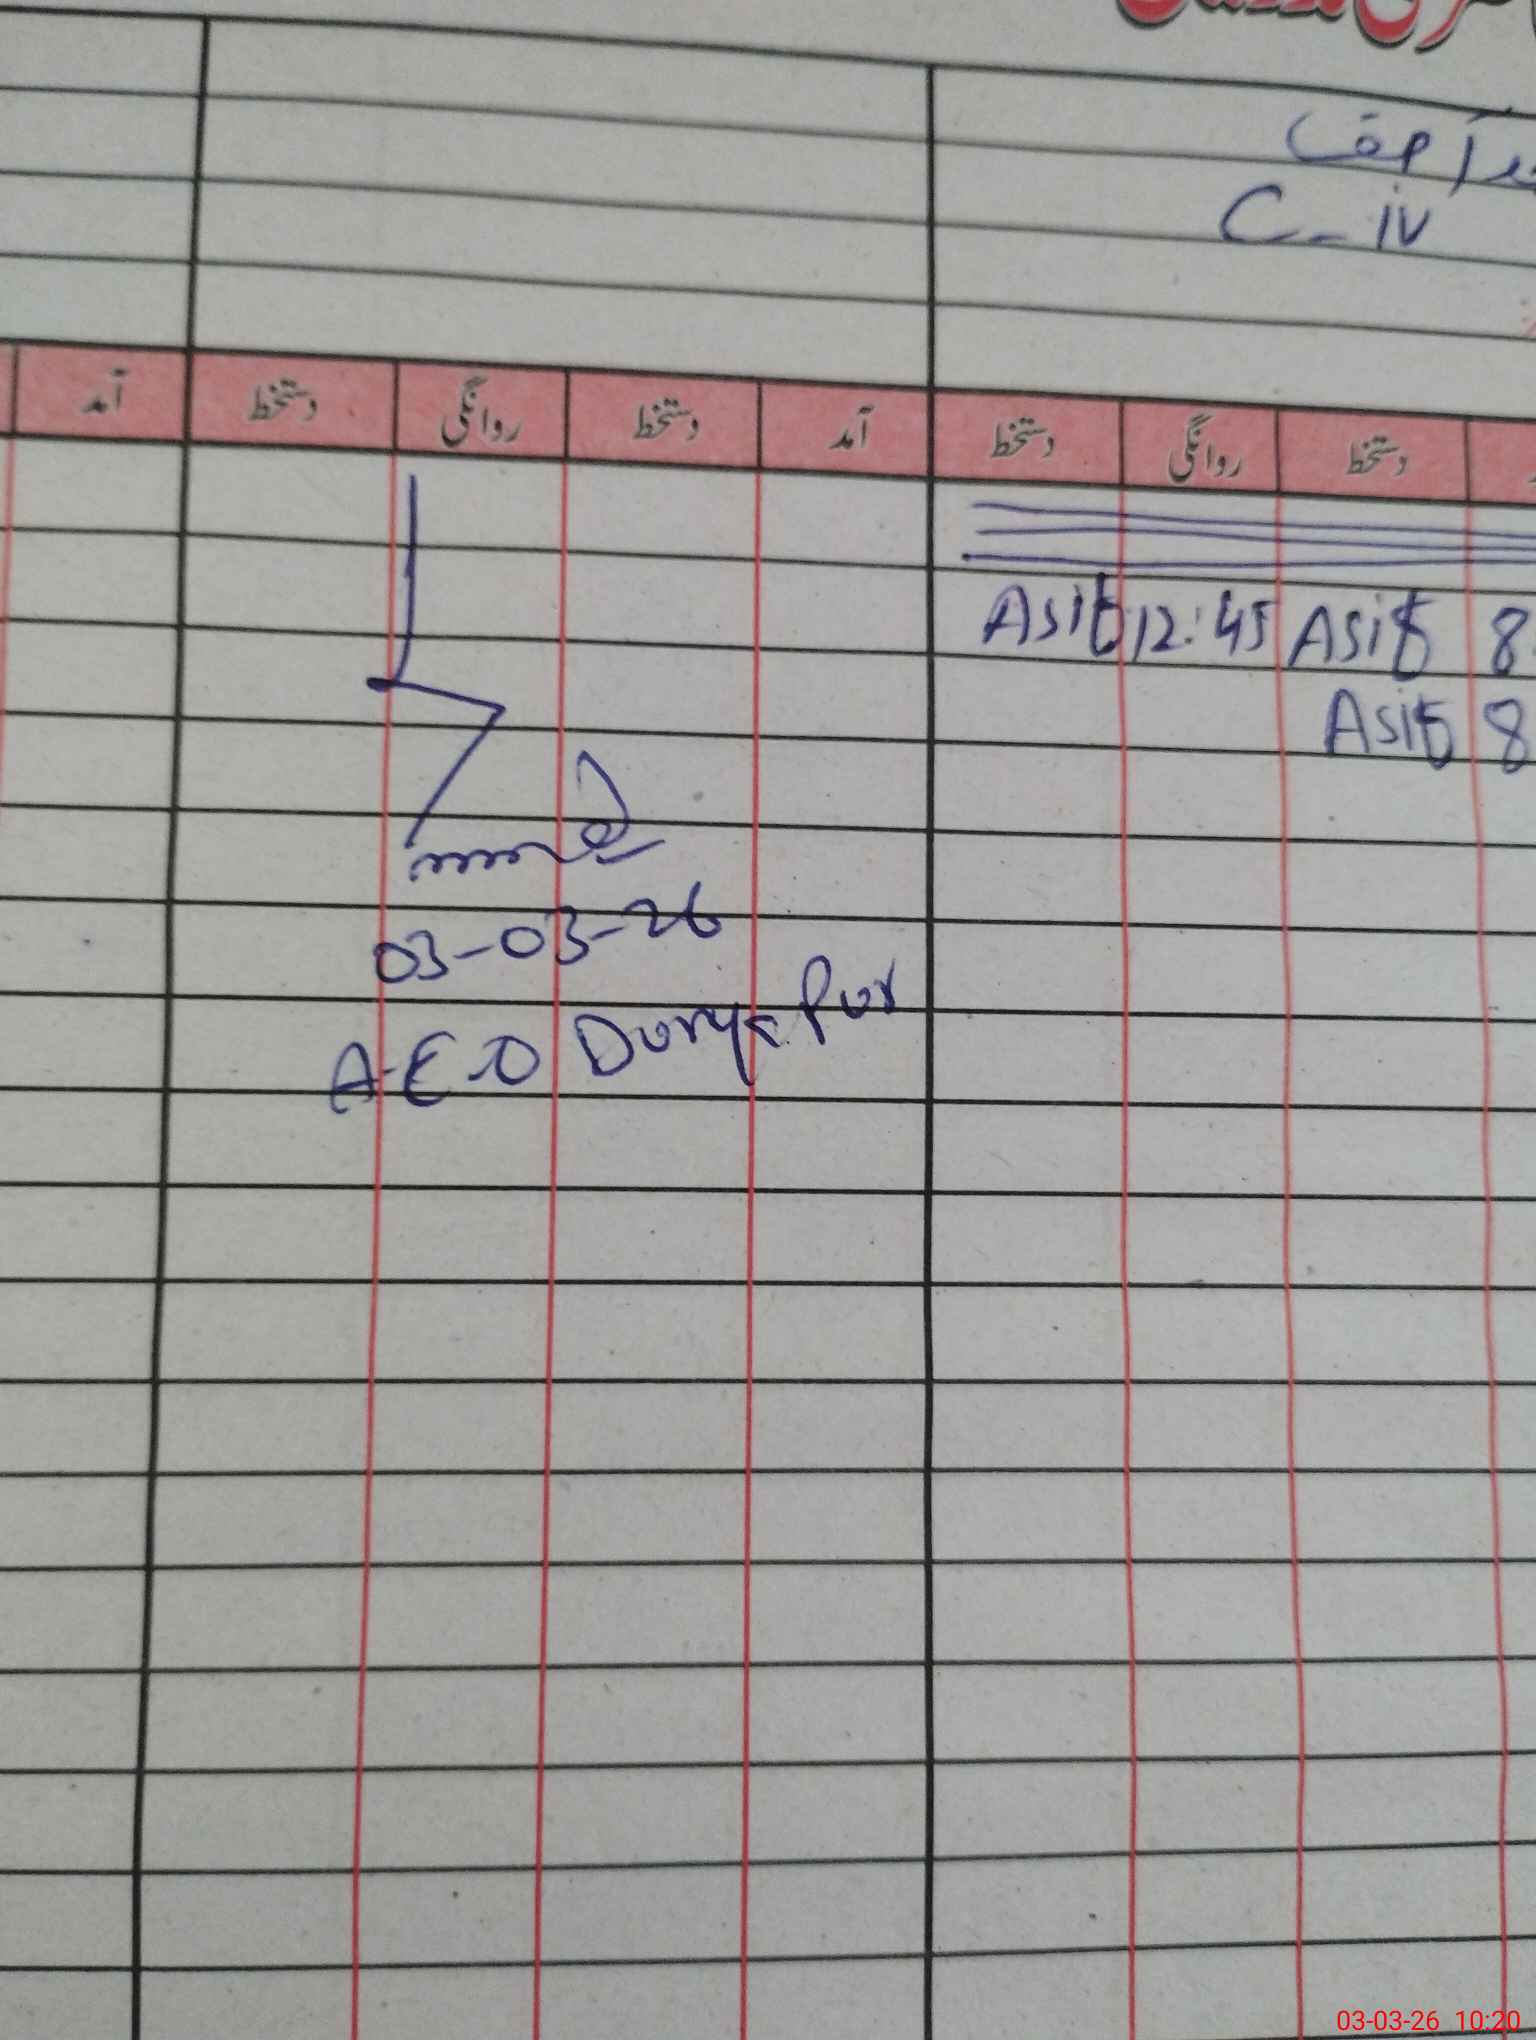 آصف
C-iv
آمد دستخط روانگی دستخط آمد دستخط روانگی دستخط
Asif 12:45 Asif 8
Asif 8
03-03-26
A.E.O Durya Pur
03-03-26 10:20